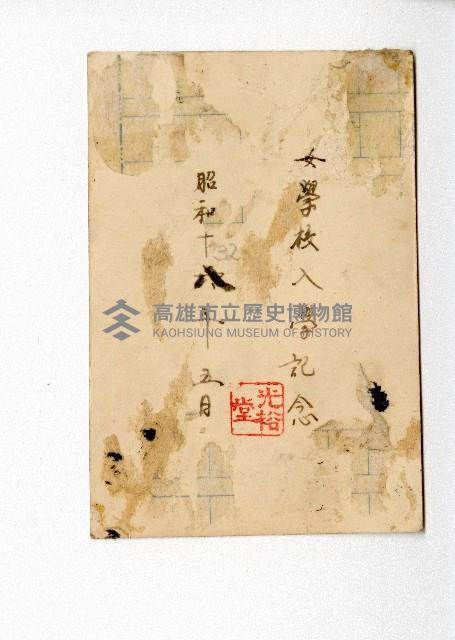 女學校入學記念
昭和十八年五月
32
光裕堂
高雄市立歷史博物館
KAOHSIUNG MUSEUM OF HISTORY